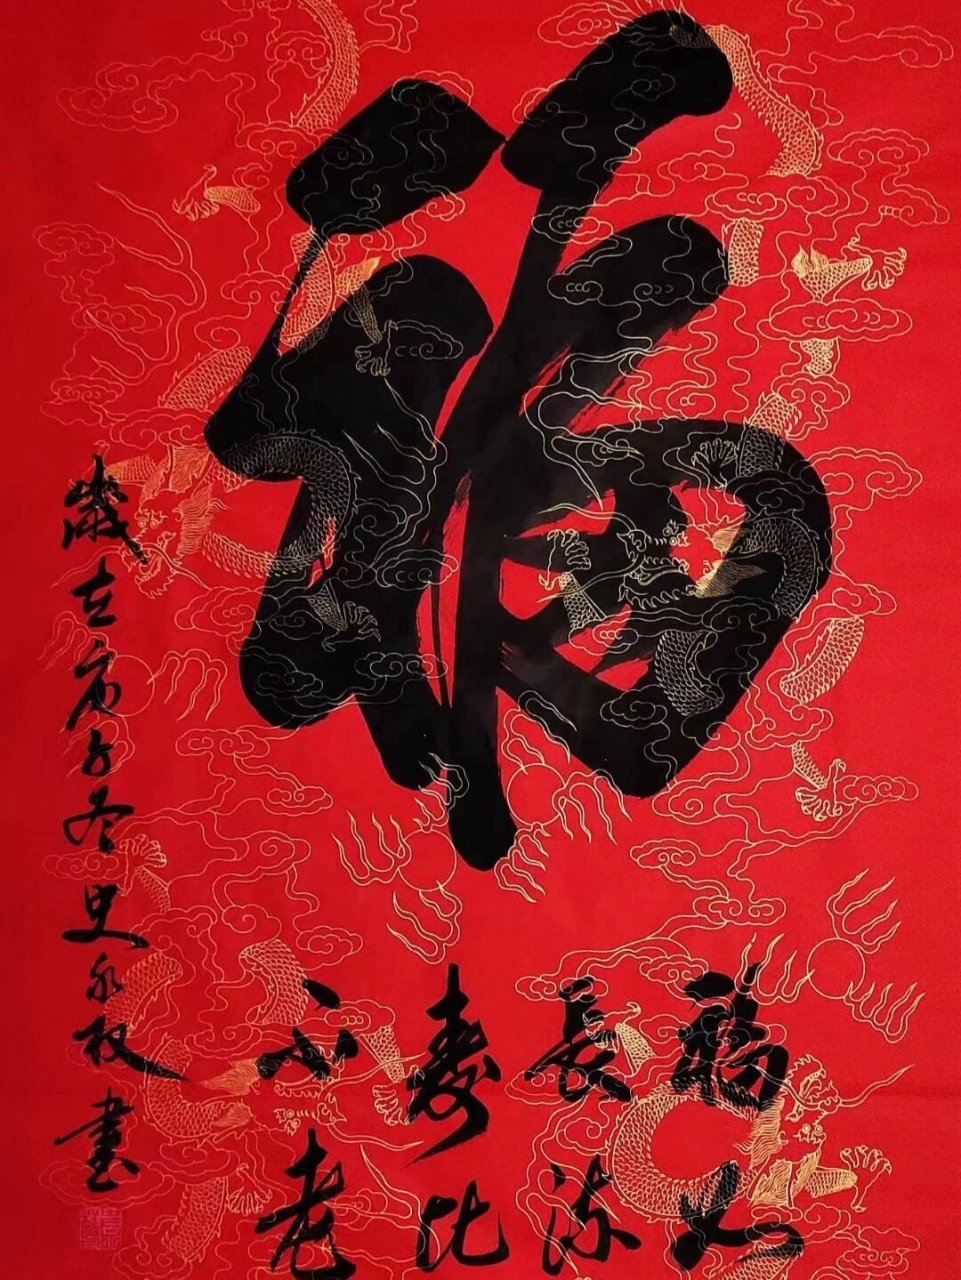 福
福如
長流
寿比
不老
歲在庚子冬史永权書